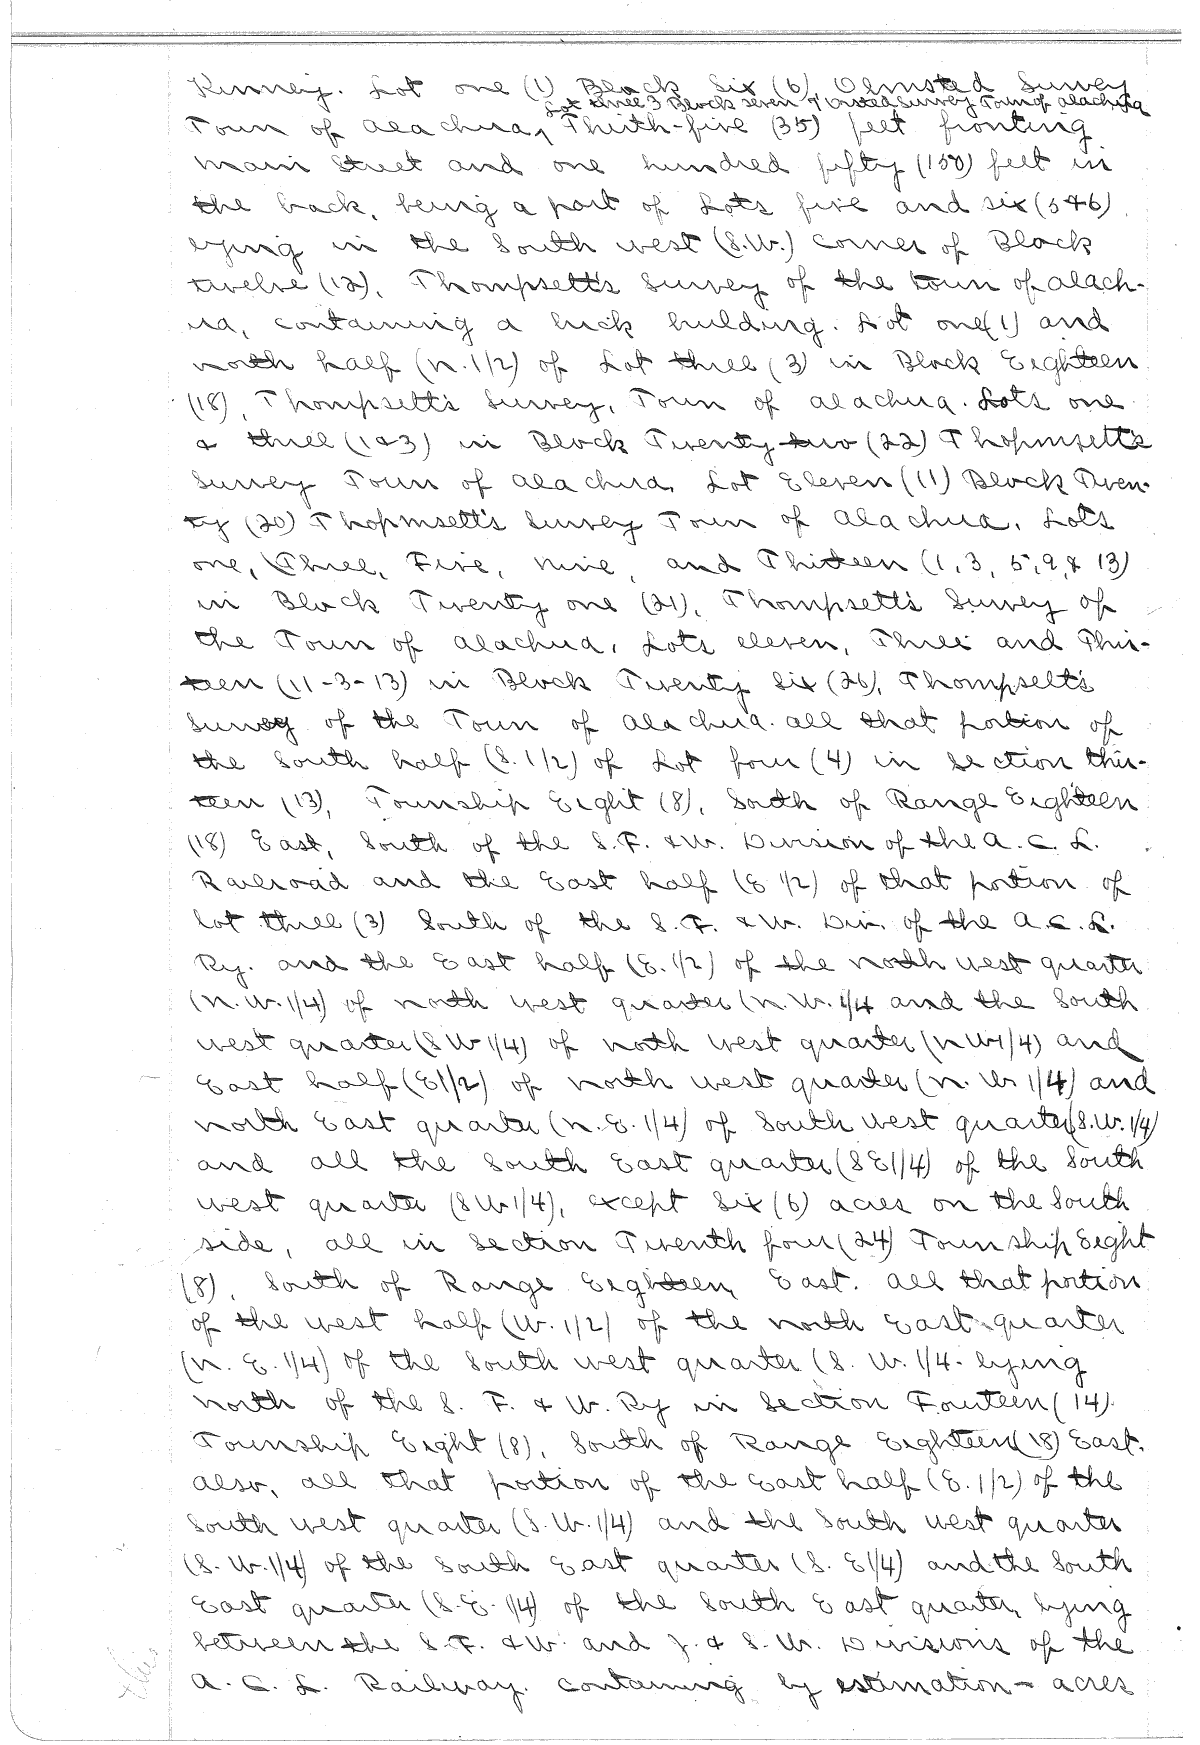 Kinney. Lot one (1) Block Six (6) Olmsted Survey
Lot three 3 Block seven 7 Olmsted Survey Town of alachua
Town of alachua, Thirth-five (35) feet fronting
main Street and one hundred fifty (150) feet in
the back, being a part of Lots five and six (5 & 6)
lying in the South west (S.W.) corner of Block
twelve (12), Thompsett's Survey of the town of alach-
ua, containing a brick building. Lot one (1) and
north half (n. 1/2) of Lot three (3) in Block Eighteen
(18), Thompsett's Survey, Town of alachua. Lots one
& three (1 & 3) in Block Twenty two (22) Thopmsett's
Survey Town of alachua, Lot Eleven (11) Block Twen-
ty (20) Thopmsett's Survey Town of alachua, Lots
one, Three, Five, nine, and Thirteen (1, 3, 5, 9, & 13)
in Block Twenty one (21), Thompsett's Survey of
the Town of alachua, Lots eleven, Three and Thir-
teen (11-3-13) in Block Twenty Six (26), Thompsett's
Survey of the Town of alachua. all that portion of
the South half (S. 1/2) of Lot four (4) in Section thir-
teen (13), Township Eight (8), South of Range Eighteen
(18) East, South of the S. F. & W. Division of the A. C. L.
Railroad and the East half (E 1/2) of that portion of
Lot three (3) South of the S. F. & W. Div. of the A. C. L.
Ry. and the East half (E. 1/2) of the north west quarter
(n. W. 1/4) of north west quarter (n. W. 1/4 and the South
west quarter (S W 1/4) of north west quarter (n W 1/4) and
East half (E 1/2) of north west quarter (n. W 1/4) and
north East quarter (n. E. 1/4) of South west quarter (S. W. 1/4)
and all the South East quarter (S E 1/4) of the South
west quarter (S W 1/4), except Six (6) acres on the South
side, all in Section Twenth four (24) Township Eight
(8), South of Range Eighteen, East. all that portion
of the west half (W. 1/2) of the north East quarter
(n. E. 1/4) of the South west quarter (S. W. 1/4. lying
north of the S. F. & W. Ry in Section Fourteen (14)
Township Eight (8), South of Range Eighteen (18) East.
also, all that portion of the East half (E. 1/2) of the
South west quarter (S. W. 1/4) and the South west quarter
(S. W. 1/4) of the South East quarter (S. E 1/4) and the South
East quarter (S. E. 1/4) of the South East quarter, lying
between the S. F. & W. and J. & S. W. Divisions of the
A. C. L. Railway. containing by estimation - acres